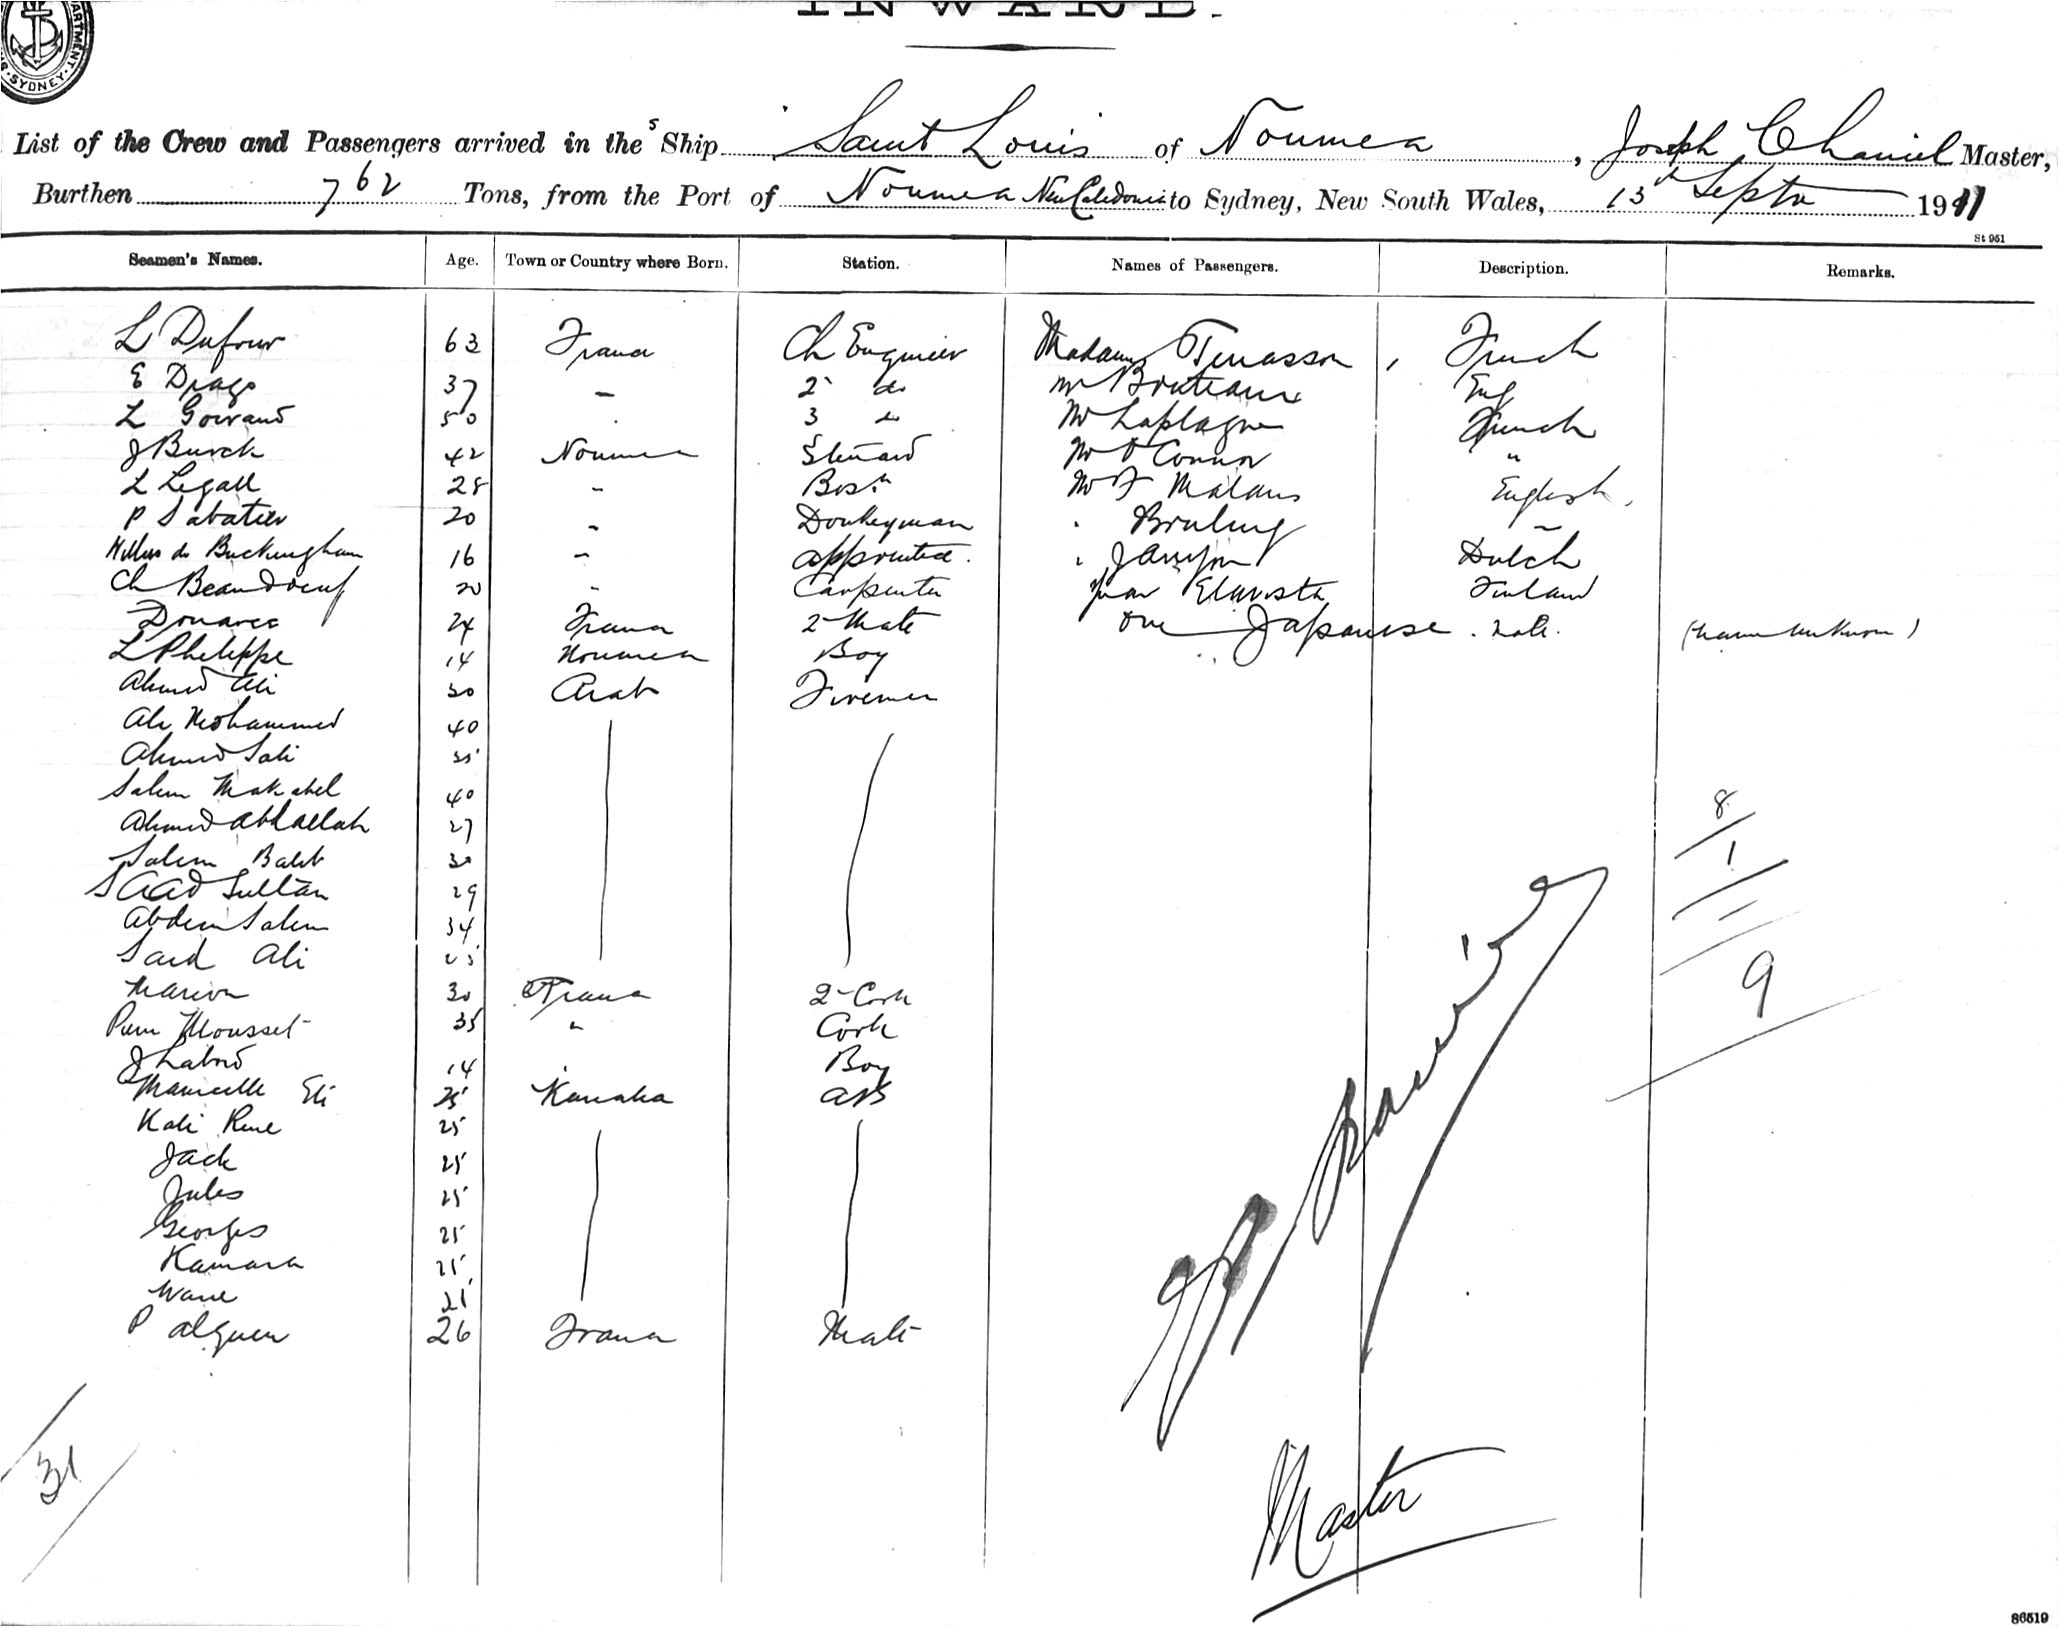 INWARD.
DEPARTMENT SYDNEY
List of the Crew and Passengers arrived in the s Ship Saint Louis of Noumea, Joseph Chaniel Master,
Burthen 762 Tons, from the Port of Noumea New Caledonia to Sydney, New South Wales, 13th Septr 1911
St 951
Seamen's Names. Age. Town or Country where Born. Station. Names of Passengers. Description. Remarks.
L Dufour 63 France Ch Engineer Madame French
E Drago 37 — 2 do Mr Bruteaux Eng
L Goiraud 50 3 do Mr Laplagne French
J Burck 42 Noumea Steward Mr O Connor "
L Legall 28 - Bosn Mr F Malaus English
P Sabatier 20 - Donkeyman Bruling -
de Buckingham 16 - apprentice Dutch
Ch Beaudoeuf 20 - Carpenter Finland
Douarec 24 France 2 Mate One Japanese (name unknown)
L Phelippe 14 Noumea Boy
Ahmed Ali 30 Arab Firemen
Ali Mohammed 40
Ahmed Sali 35
Salem Makabel 40
Ahmed Abdallah 27
Salem 30
Saad Sultan 29
Abdem Salem 34
Said Ali 25
Marion 30 France 2 Cook
Pierre Mousset 35 " Cook
J Labord 14 Boy
Eli 25 Kanaka AB
Kali Rene 25
Jack 25
Jules 25
Georges 25
Kamara 25
Wane
P Alguen 26 France Mate
8
1
9
31
Master
86519